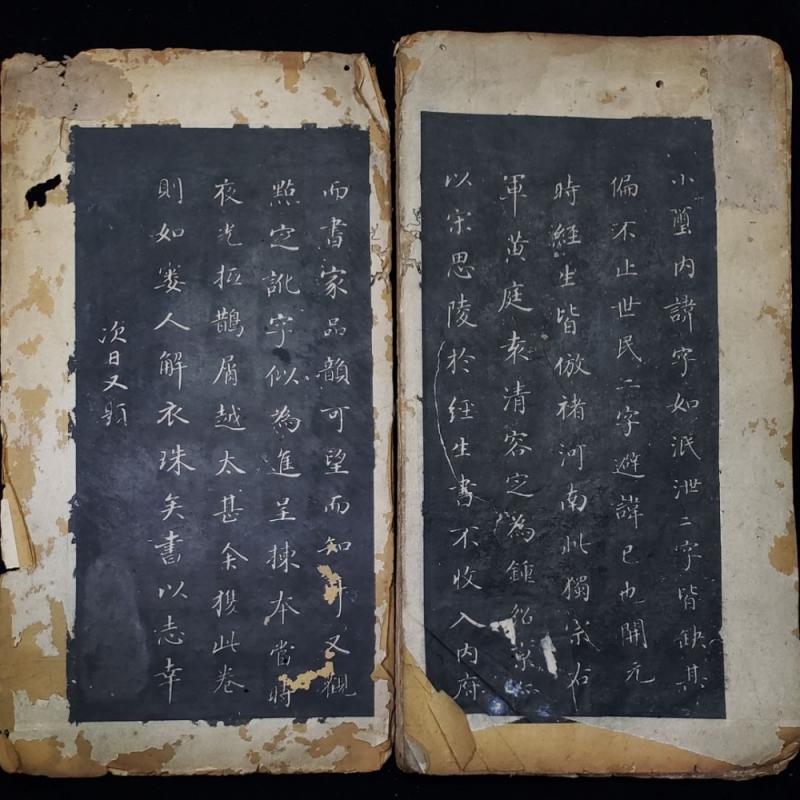 小璽內諱字如泯泄二字皆缺其
偏不止世民二字避諱已也開元
時經生皆倣褚河南此獨宗右
軍黃庭袁清容定為鍾紹京
以宋思陵於經生書不收入內府
而書家品韻可望而知耳又觀
點定訛字似為進呈揀本當時
夜光抵鵲屑越太甚余獲此卷
則如窶人解衣珠矣書以志幸
次日又題